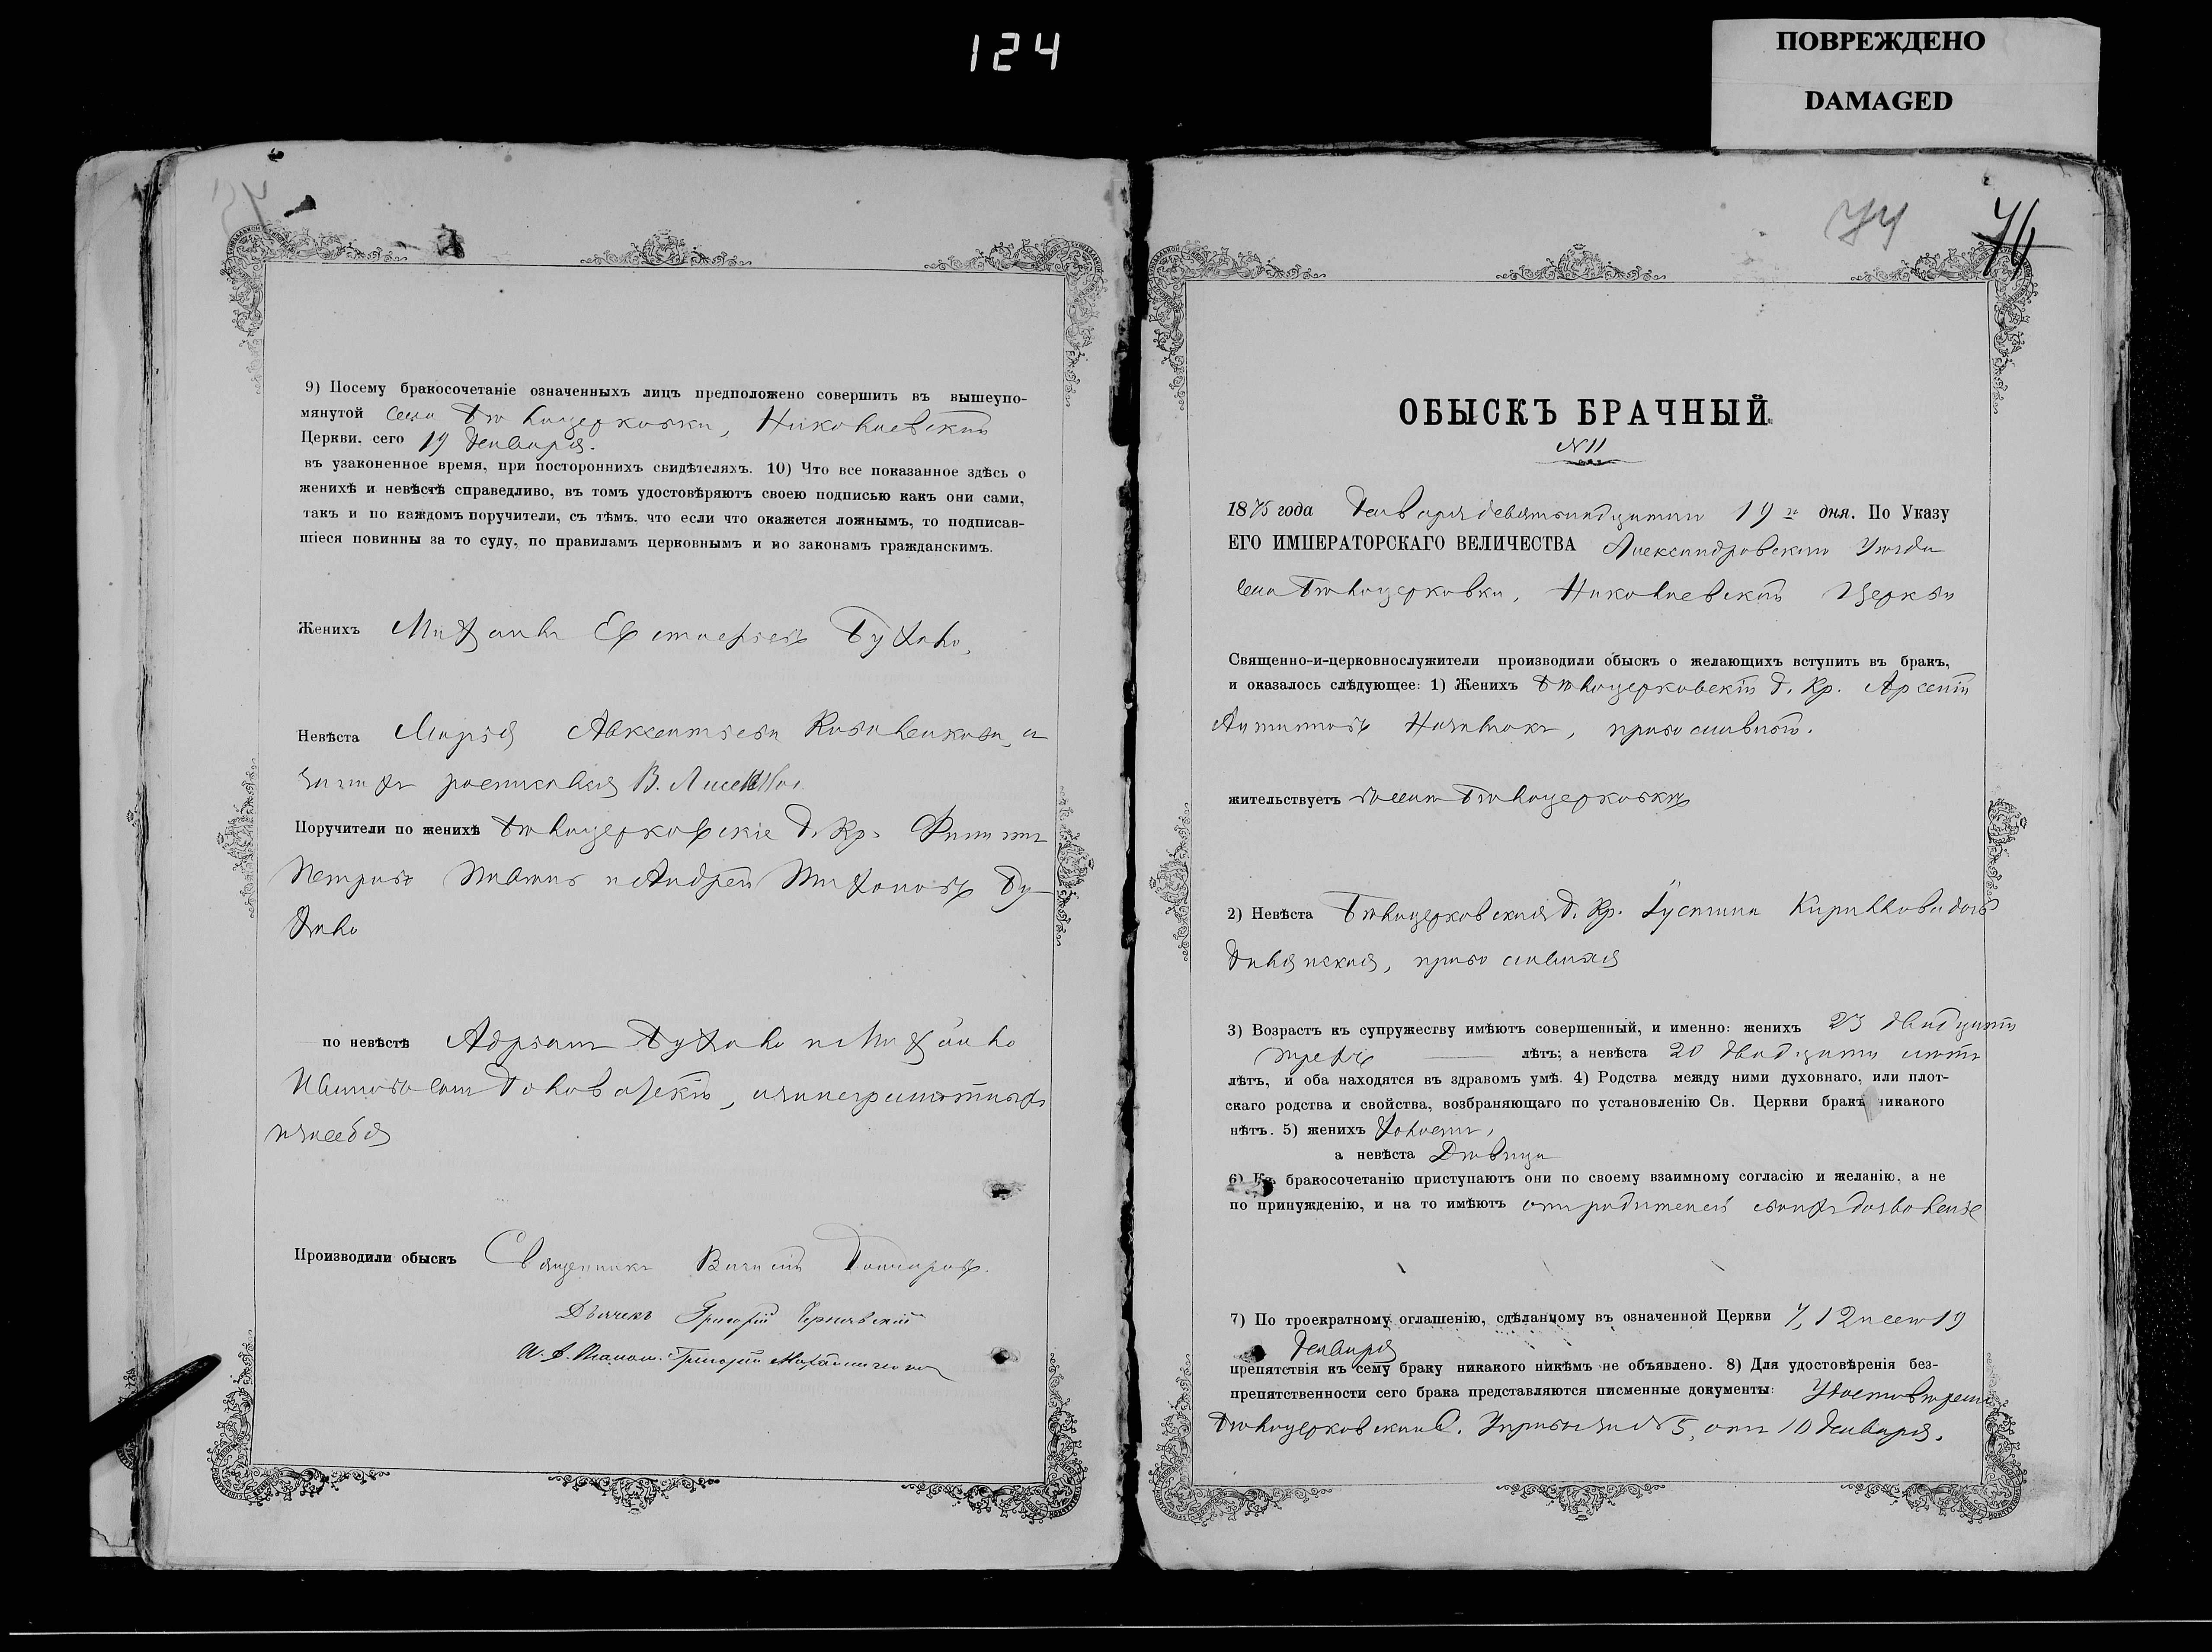 124
ПОВРЕЖДЕНО
DAMAGED
9) Посему бракосочетаніе означенныхъ лицъ предположено совершить въ вышеупо-
мянутой села Бѣлоцерковки, Николаевской
Церкви. сего 19 Генваря.
въ узаконенное время, при постороннихъ свидѣтеляхъ. 10) Что все показанное здѣсь о
женихѣ и невѣстѣ справедливо, въ томъ удостовѣряютъ своею подписью какъ они сами,
такъ и по каждомъ поручители, съ тѣмъ, что если что окажется ложнымъ, то подписав-
шіеся повинны за то суду, по правиламъ церковнымъ и по законамъ гражданскимъ.
Женихъ Михаилъ Евстафьевъ
Невѣста Марья Авксентьева
росписался В.
Поручители по женихѣ Бѣлоцерковскіе Г. Кр. Филиппъ
Петровъ и Андрей Тихоновъ
по невѣстѣ Адріанъ и Михайло
Ивановъ
и за себя
Производили обыскъ Священникъ Василій
Дьячекъ Григорій
Григорій
74
76
ОБЫСКЪ БРАЧНЫЙ
N 11
1875 года Генваря девятьнадцатаго 19 го дня. По Указу
ЕГО ИМПЕРАТОРСКАГО ВЕЛИЧЕСТВА Александровскаго Уѣзда
села Бѣлоцерковки, Николаевской Церкви
Священно-и-церковнослужители производили обыскъ о желающихъ вступить въ бракъ,
и оказалось слѣдующее: 1) Женихъ Бѣлоцерковскій Г. Кр. Арсеній
православный.
жительствуетъ въ селѣ Бѣлоцерковкѣ
2) Невѣста Бѣлоцерковская Г. Кр. Іустина Кириллова дочь
православная
3) Возрастъ къ супружеству имѣютъ совершенный, и именно: женихъ 23 двадцати
трехъ лѣтъ; а невѣста 20 двадцати лѣтъ
лѣтъ, и оба находятся въ здравомъ умѣ. 4) Родства между ними духовнаго, или плот-
скаго родства и свойства, возбраняющаго по установленію Св. Церкви бракъ никакого
нѣтъ. 5) женихъ Холостъ,
а невѣста Дѣвица
6) Къ бракосочетанію приступаютъ они по своему взаимному согласію и желанію, а не
по принужденію, и на то имѣютъ отъ родителей своихъ дозволеніе
7) По троекратному оглашенію, сдѣланному въ означенной Церкви 7, 12 и сего 19
Генваря
препятствія къ сему браку никакого никѣмъ не объявлено. 8) Для удостовѣренія без-
препятственности сего брака представляются писменные документы: Удостовѣреніе
Бѣлоцерковскаго В. Правл. за N 5, отъ 10 Генваря.